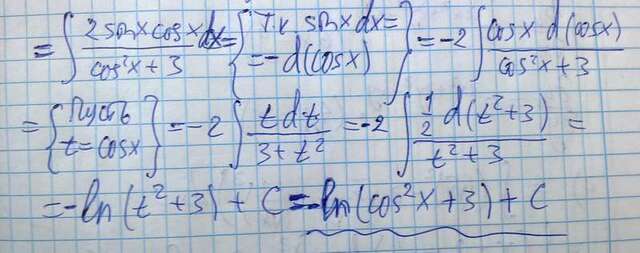 = ∫ 2 sin x cos x dx / cos²x + 3 = { Т.к sin x dx = = -d(cos x) } = -2 ∫ cos x d(cos x) / cos²x + 3
= { Пусть t = cos x } = -2 ∫ t dt / 3 + t² = -2 ∫ ½ d(t² + 3) / t² + 3 =
= -ln(t² + 3) + C = -ln(cos²x + 3) + C